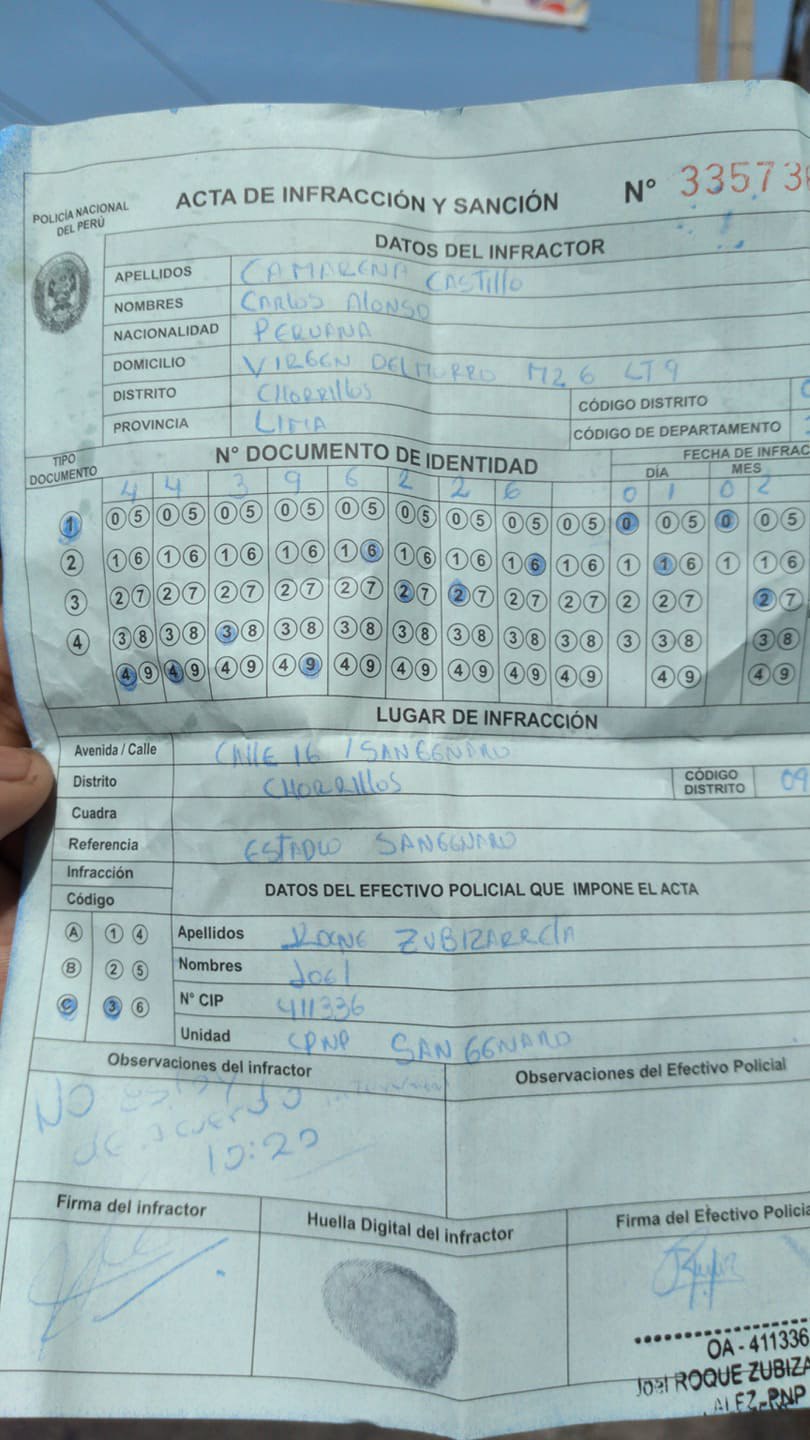 POLICÍA NACIONAL
DEL PERÚ
ACTA DE INFRACCIÓN Y SANCIÓN
N° 33573
DATOS DEL INFRACTOR
APELLIDOS CAMARENA CASTILLO
NOMBRES CARLOS ALONSO
NACIONALIDAD PERUANA
DOMICILIO VIRGEN DEL MORRO MZ 6 LT 9
DISTRITO CHORRILLOS
CÓDIGO DISTRITO
PROVINCIA LIMA
CÓDIGO DE DEPARTAMENTO
TIPO
DOCUMENTO
N° DOCUMENTO DE IDENTIDAD
FECHA DE INFRAC
DÍA MES
4 4 3 9 6 2 2 6 0 1 0 2
1 0 5 0 5 0 5 0 5 0 5 0 5 0 5 0 5 0 5 0 0 5 0 0 5
2 1 6 1 6 1 6 1 6 1 6 1 6 1 6 1 6 1 6 1 1 6 1 1 6
3 2 7 2 7 2 7 2 7 2 7 2 7 2 7 2 7 2 7 2 2 7 2 7
4 3 8 3 8 3 8 3 8 3 8 3 8 3 8 3 8 3 8 3 3 8 3 8
4 9 4 9 4 9 4 9 4 9 4 9 4 9 4 9 4 9 4 9 4 9
LUGAR DE INFRACCIÓN
Avenida / Calle CALLE 16 / SAN GENARO
Distrito CHORRILLOS
CÓDIGO
DISTRITO 09
Cuadra
Referencia ESTADIO SAN GENARO
Infracción
Código
DATOS DEL EFECTIVO POLICIAL QUE IMPONE EL ACTA
A 1 4 Apellidos ROQUE ZUBIZARRETA
B 2 5 Nombres JOEL
C 3 6 N° CIP 411336
Unidad CPNP SAN GENARO
Observaciones del infractor
Observaciones del Efectivo Policial
NO ESTOY
de acuerdo
10:20
Firma del infractor
Huella Digital del infractor
Firma del Efectivo Policia
OA - 411336
Joel ROQUE ZUBIZA
ALFZ-PNP